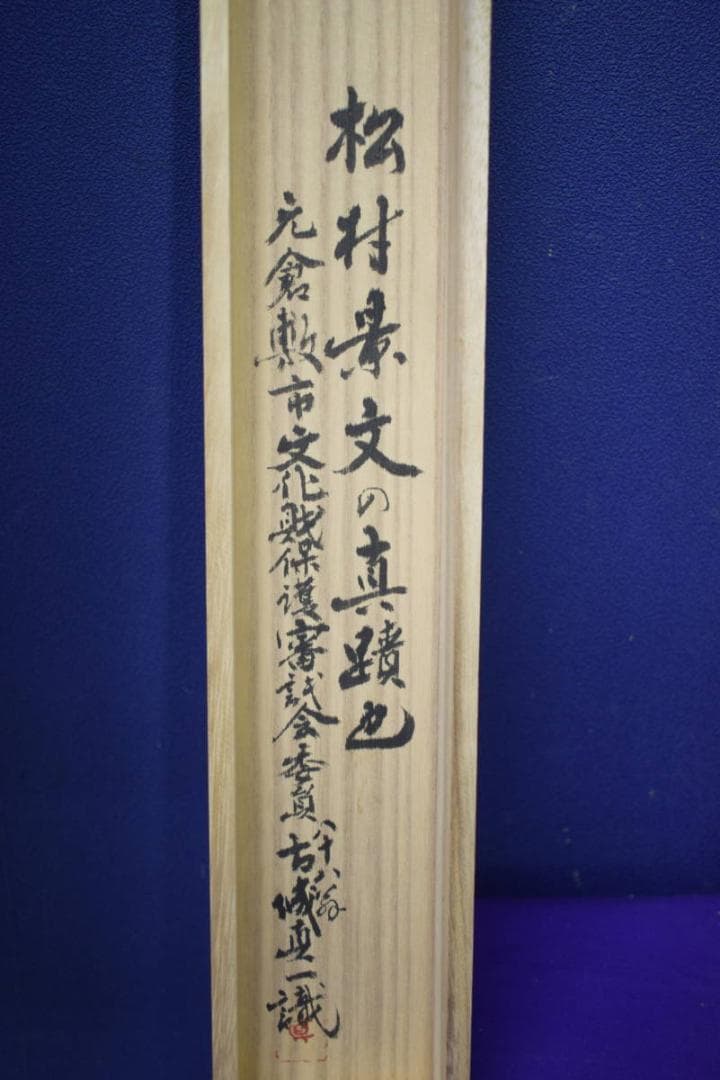 松村景文の真蹟也
元倉敷市文化財保護審議会委員八十八翁古城真一識